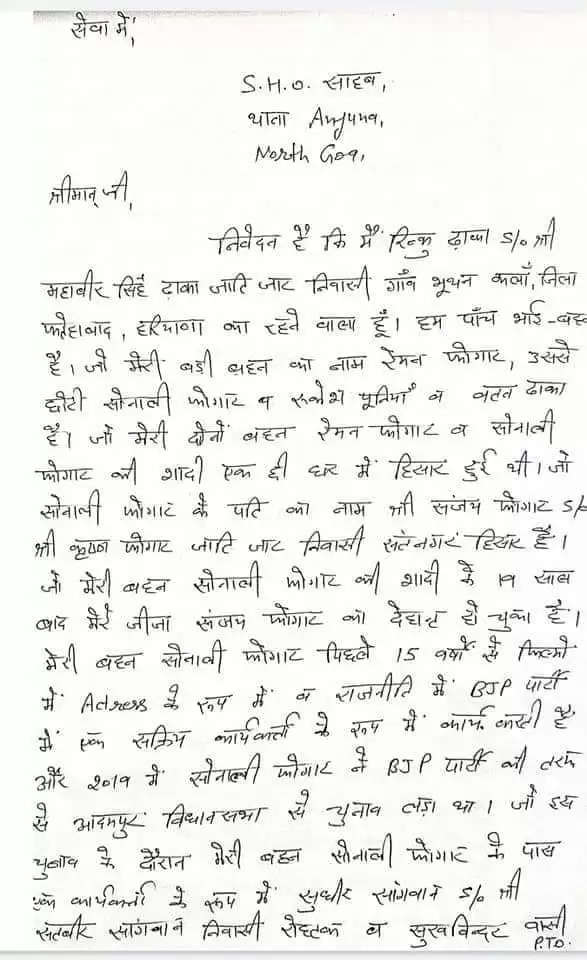 सेवा में,
S.H.O. साहब,
थाना Anjuna,
North Goa,
श्रीमान् जी,
निवेदन है कि मैं रिन्कु ढाका S/o श्री
महाबीर सिहँ ढाका जाति जाट निवासी गाँव भूथन कलाँ, जिला
फतेहाबाद, हरियाणा का रहने वाला हूँ। हम पाँच भाई-बहन
है। जो मेरी बडी बहन का नाम रेमन फोगाट, उससे
छोटी सोनाली फोगाट व रूकेश पूनियाँ व वतन ढाका
है। जो मेरी दोनों बहन रेमन फोगाट व सोनाली
फोगाट की शादी एक ही घर में हिसार हुई थी। जो
सोनाली फोगाट के पति का नाम श्री संजय फोगाट S/o
श्री कृष्ण फोगाट जाति जाट निवासी संतनगर हिसार है।
जो मेरी बहन सोनाली फोगाट की शादी के 19 साल
बाद मेरे जीजा संजय फोगाट का देहान्त हो चुका है।
मेरी बहन सोनाली फोगाट पिछले 15 वर्षों से फिल्मों
में Actress के रूप में व राजनीति में BJP पार्टी
में एक सक्रिय कार्यकर्ता के रूप में कार्य करती है
और 2019 में सोनाली फोगाट ने BJP पार्टी की तरफ
से आदमपुर विधानसभा से चुनाव लड़ा था। जो इस
चुनाव के दौरान मेरी बहन सोनाली फोगाट के पास
एक कार्यकर्ता के रूप में सुधीर सांगवान S/o श्री
सतबीर सांगवान निवासी रोहतक व सुखविन्दर वासी
P.T.O.